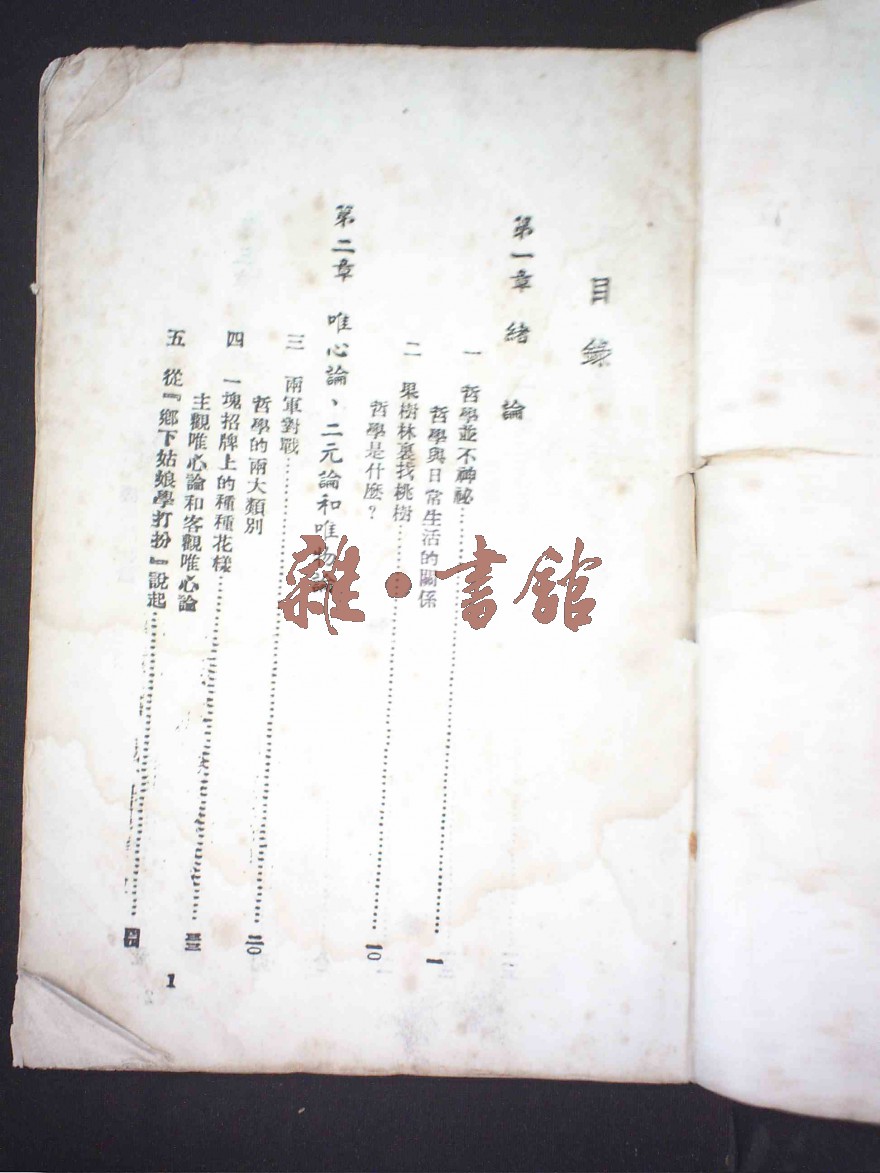 目錄
第一章 緒論
一 哲學並不神祕……一
哲學與日常生活的關係
二 果樹林裏找桃樹……一〇
哲學是什麼？
第二章 唯心論、二元論和唯物論
三 兩軍對戰……二〇
哲學的兩大類別
四 一塊招牌上的種種花樣……
主觀唯心論和客觀唯心論
五 從『鄉下姑娘學打扮』說起……
1
雜·書館